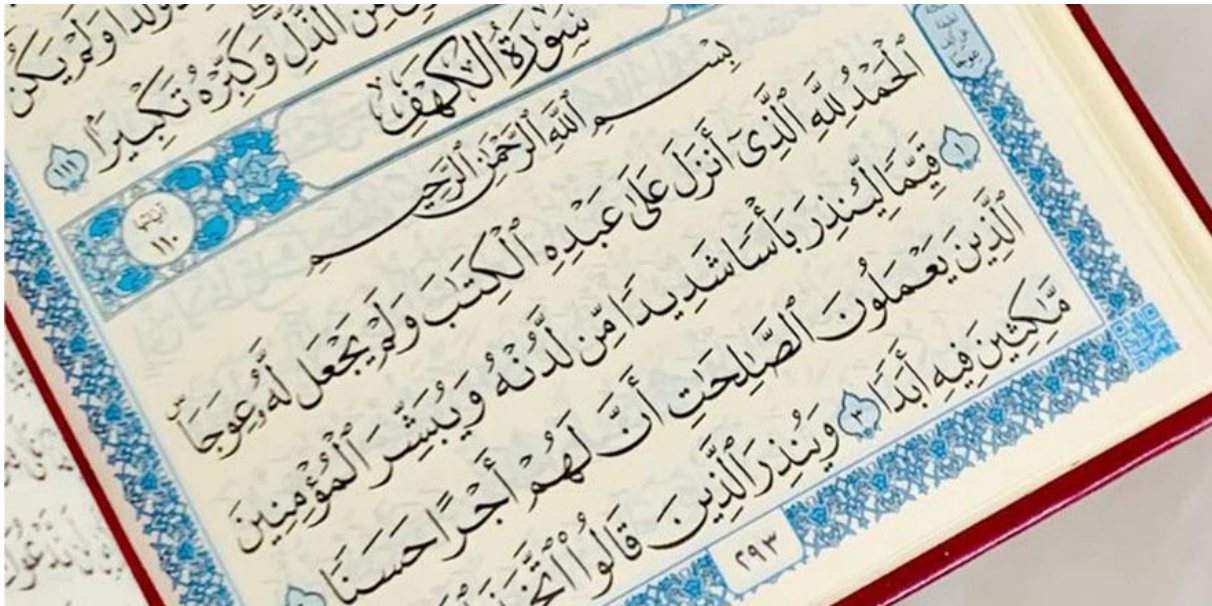 وَلَدًا وَلَمْ يَكُن
مِّنَ ٱلذُّلِّ وَكَبِّرْهُ تَكْبِيرًا ١١١
سُورَةُ الكَهْفِ
آياتها ١١٠
بِسْمِ ٱللَّهِ ٱلرَّحْمَٰنِ ٱلرَّحِيمِ
ٱلْحَمْدُ لِلَّهِ ٱلَّذِىٓ أَنزَلَ عَلَىٰ عَبْدِهِ ٱلْكِتَٰبَ وَلَمْ يَجْعَل لَّهُۥ عِوَجَاۜ
١ قَيِّمًا لِّيُنذِرَ بَأْسًا شَدِيدًا مِّن لَّدُنْهُ وَيُبَشِّرَ ٱلْمُؤْمِنِينَ
ٱلَّذِينَ يَعْمَلُونَ ٱلصَّٰلِحَٰتِ أَنَّ لَهُمْ أَجْرًا حَسَنًا
مَّٰكِثِينَ فِيهِ أَبَدًا ٣ وَيُنذِرَ ٱلَّذِينَ قَالُوا۟ ٱتَّخَذَ
٢٩٣